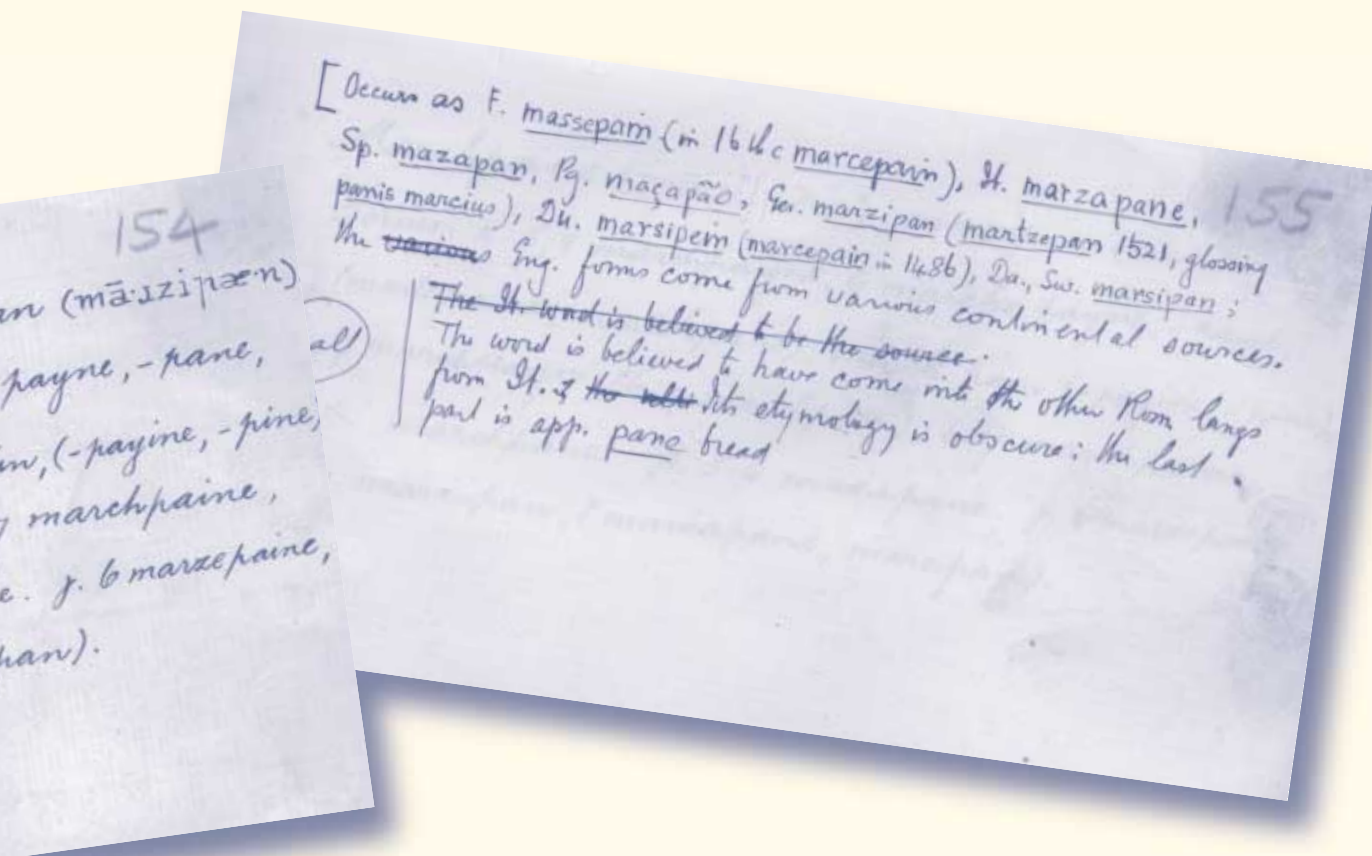 154
an (mā·ɹzipæ·n)
payne, -pane,
in, (-payine, -pine,
marchpaine,
e. γ. 6 marzepaine,
pan).
155
[Occurs as F. massepain (in 16th c marcepain), It. marzapane,
Sp. mazapan, Pg. maçapão, Ger. marzipan (martzepan 1521, glossing
panis marcius), Du. marsipein (marcepain in 1486), Da., Sw. marsipan ;
the various Eng. forms come from various continental sources.
The It. word is believed to be the source.
The word is believed to have come into the other Rom langs
from It. & Its etymology is obscure: the last
part is app. pane bread
all